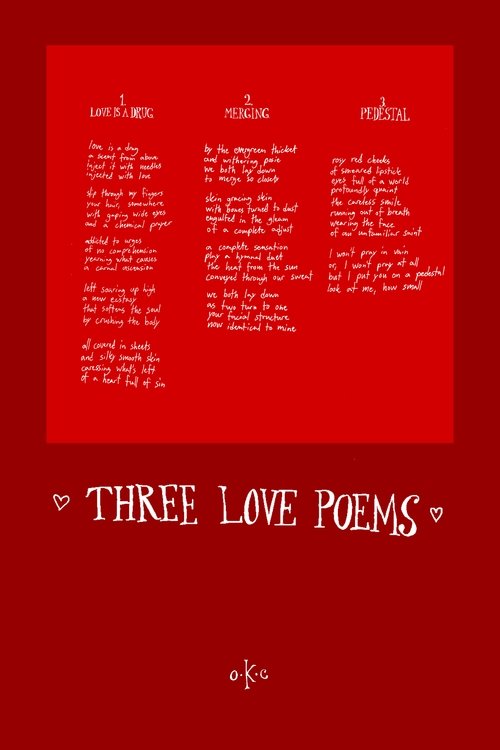 1.
LOVE IS A DRUG
love is a drug
a scent from above
inject it with needles
injected with love
slip through my fingers
your hair, somewhere
with gaping wide eyes
and a chemical prayer
addicted to urges
of no comprehension
yearning what causes
a carnal ascension
left soaring up high
a new ecstasy
that softens the soul
by crushing the body
all covered in sheets
and silky smooth skin
caressing what's left
of a heart full of sin
2.
MERGING
by the evergreen thicket
and withering posie
we both lay down
to merge so closely
skin gracing skin
with bones turned to dust
engulfed in the gleam
of a complete adjust
a complete sensation
play a hymnal duet
the heat from the sun
conveyed through our sweat
we both lay down
as two turn to one
your facial structure
now identical to mine
3.
PEDESTAL
rosy red cheeks
of smeared lipstick
eyes full of a world
profoundly quaint
the careless smile
running out of breath
wearing the face
of an unfamiliar saint
I won't pray in vain
or, I won't pray at all
but I put you on a pedestal
look at me, how small
♡ THREE LOVE POEMS ♡
o.K.c